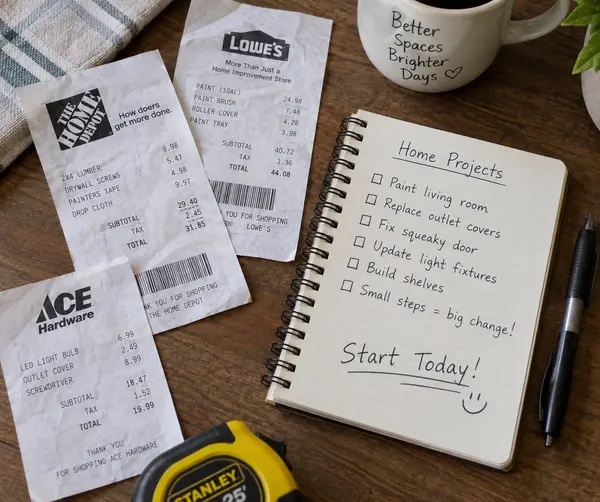 THE
HOME
DEPOT
How doers
get more done.
2X4 LUMBER 8.98
DRYWALL SCREWS 5.47
PAINTERS TAPE 4.98
DROP CLOTH 9.97
SUBTOTAL 29.40
TAX 2.45
TOTAL 31.85
YOU FOR SHOPPING
THE HOME DEPOT
LOWE'S
More Than Just a
Home Improvement Store
PAINT (1GAL) 24.98
PAINT BRUSH 7.48
ROLLER COVER 4.28
PAINT TRAY 3.98
SUBTOTAL 40.72
TAX 3.36
TOTAL 44.08
YOU FOR SHOPPING
LOWE'S
ACE
Hardware
LED LIGHT BULB 6.99
OUTLET COVER 2.49
SCREWDRIVER 8.99
SUBTOTAL 18.47
TAX 1.52
TOTAL 19.99
THANK YOU
FOR SHOPPING ACE HARDWARE
STANLEY
25'
Better
Spaces
Brighter
Days
Home Projects
Paint living room
Replace outlet covers
Fix squeaky door
Update light fixtures
Build shelves
Small steps = big change!
Start Today!